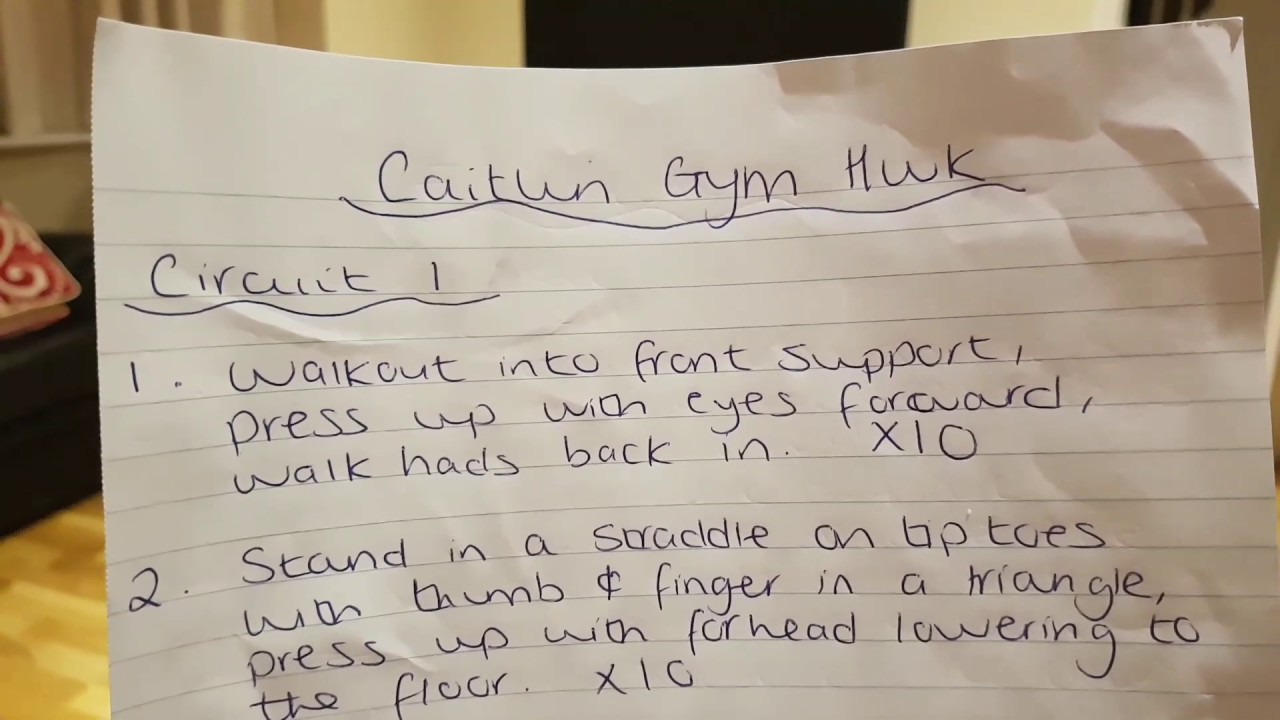 Caitlin Gym Hwk
Circuit 1
1. Walkout into front support,
press up with eyes forward,
walk hads back in. X10
2. Stand in a straddle on tip toes
with thumb & finger in a triangle,
press up with forhead lowering to
the floor. x10